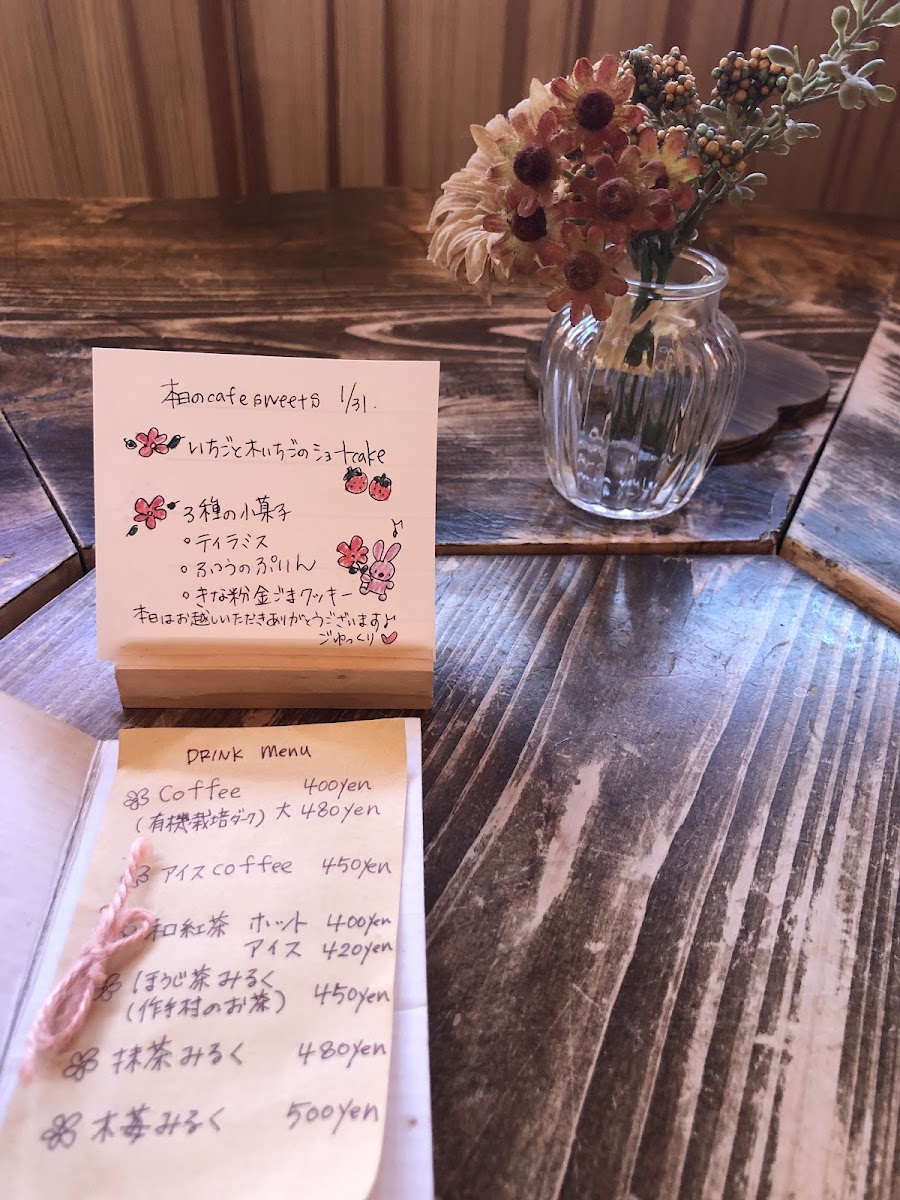 本日のcafe sweets 1/31.
いちごと木いちごのショートcake
3種の小菓子
・ティラミス
・ふつうのぷりん
・きな粉金ごまクッキー
本日はお越しいただきありがとうございます♪
ごゆっくり♡
DRINK menu
Coffee 400yen
(有機栽培ダーク) 大 480yen
アイスcoffee 450yen
和紅茶 ホット 400yen
アイス 420yen
ほうじ茶みるく
(作手村のお茶) 450yen
抹茶みるく 480yen
木苺みるく 500yen